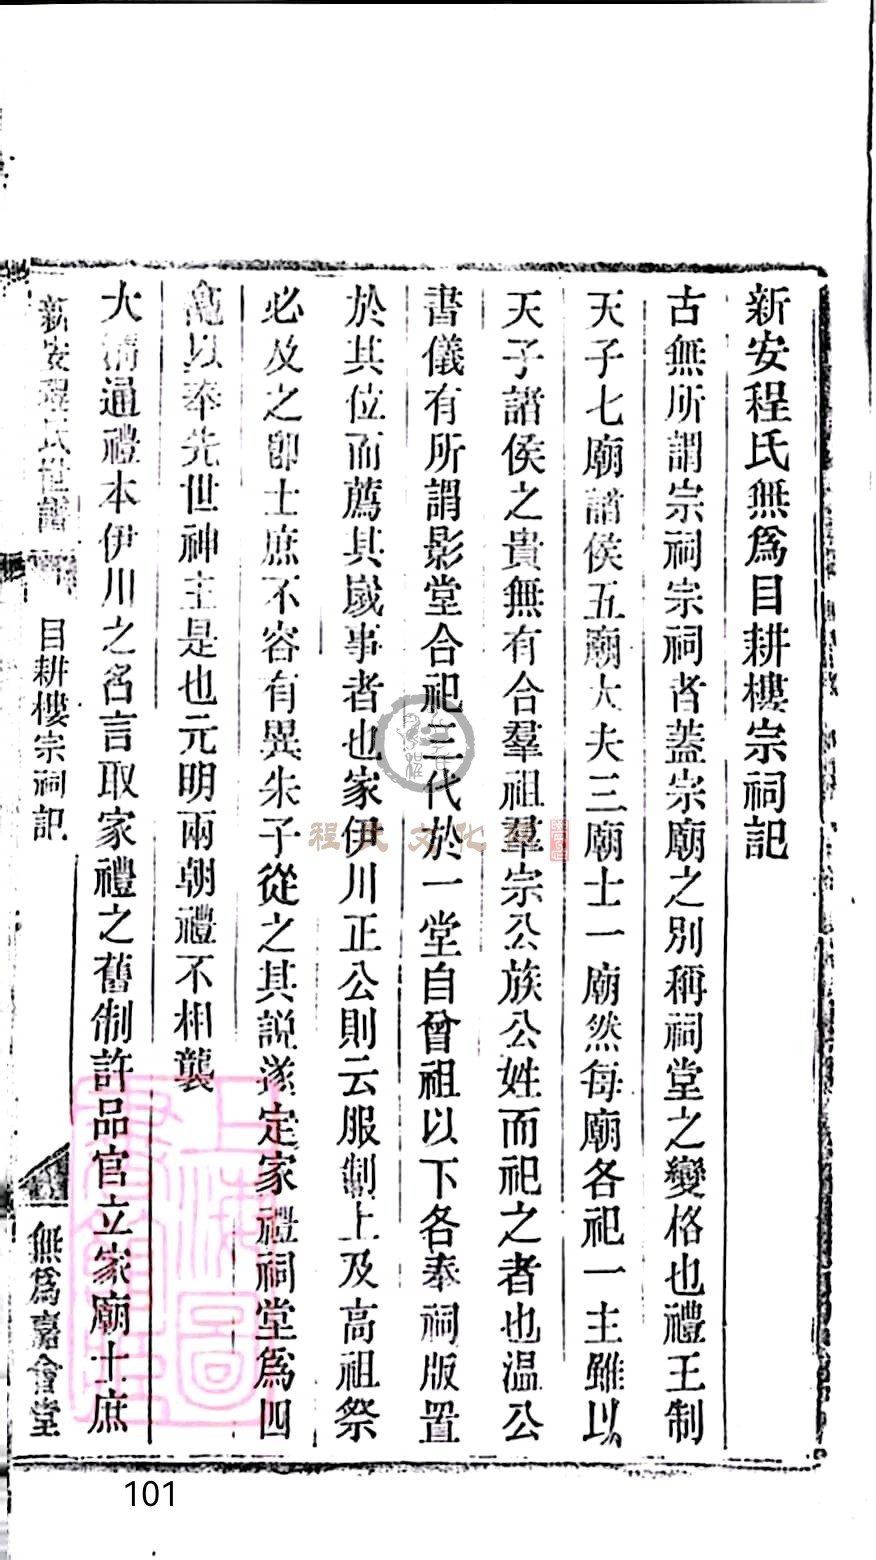 新安程氏無爲目耕樓宗祠記
古無所謂宗祠宗祠者蓋宗廟之別稱祠堂之變格也禮王制
天子七廟諸侯五廟大夫三廟士一廟然每廟各祀一主雖以
天子諸侯之貴無有合羣祖羣宗公族公姓而祀之者也温公
書儀有所謂影堂合祀三代於一堂自曾祖以下各奉祠版置
於其位而薦其歲事者也家伊川正公則云服制上及高祖祭
必及之卽士庶不容有異朱子從之其説遂定家禮祠堂爲四
龕以奉先世神主是也元明兩朝禮不相襲
大清通禮本伊川之名言取家禮之舊制許品官立家廟士庶
新安程氏世譜
目耕樓宗祠記
無爲嘉會堂
程氏文化
上海圖書館藏
101